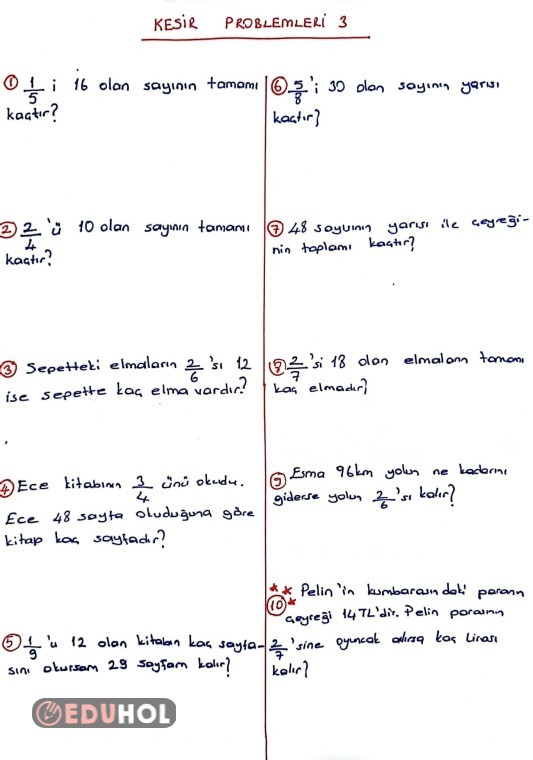 KESİR PROBLEMLERİ 3
① 1/5 i 16 olan sayının tamamı
kaçtır?
② 2/4 'ü 10 olan sayının tamamı
kaçtır?
③ Sepetteki elmaların 2/6 'sı 12
ise sepette kaç elma vardır?
④ Ece kitabının 3/4 ünü okudu.
Ece 48 sayfa okuduğuna göre
kitap kaç sayfadır?
⑤ 1/9 'u 12 olan kitabın kaç sayfa-
sını okursam 29 sayfam kalır?
⑥ 5/8 'i 30 olan sayının yarısı
kaçtır?
⑦ 48 sayısının yarısı ile çeyreği-
nin toplamı kaçtır?
2/7 'si 18 olan elmaların tamamı
kaç elmadır?
⑨ Esma 96km yolun ne kadarını
giderse yolun 2/6 'sı kalır?
** Pelin'in kumbarasındaki paranın
⑩* çeyreği 14TL'dir. Pelin parasının
2/7 'sine oyuncak alırsa kaç lirası
kalır?
EDUHOL